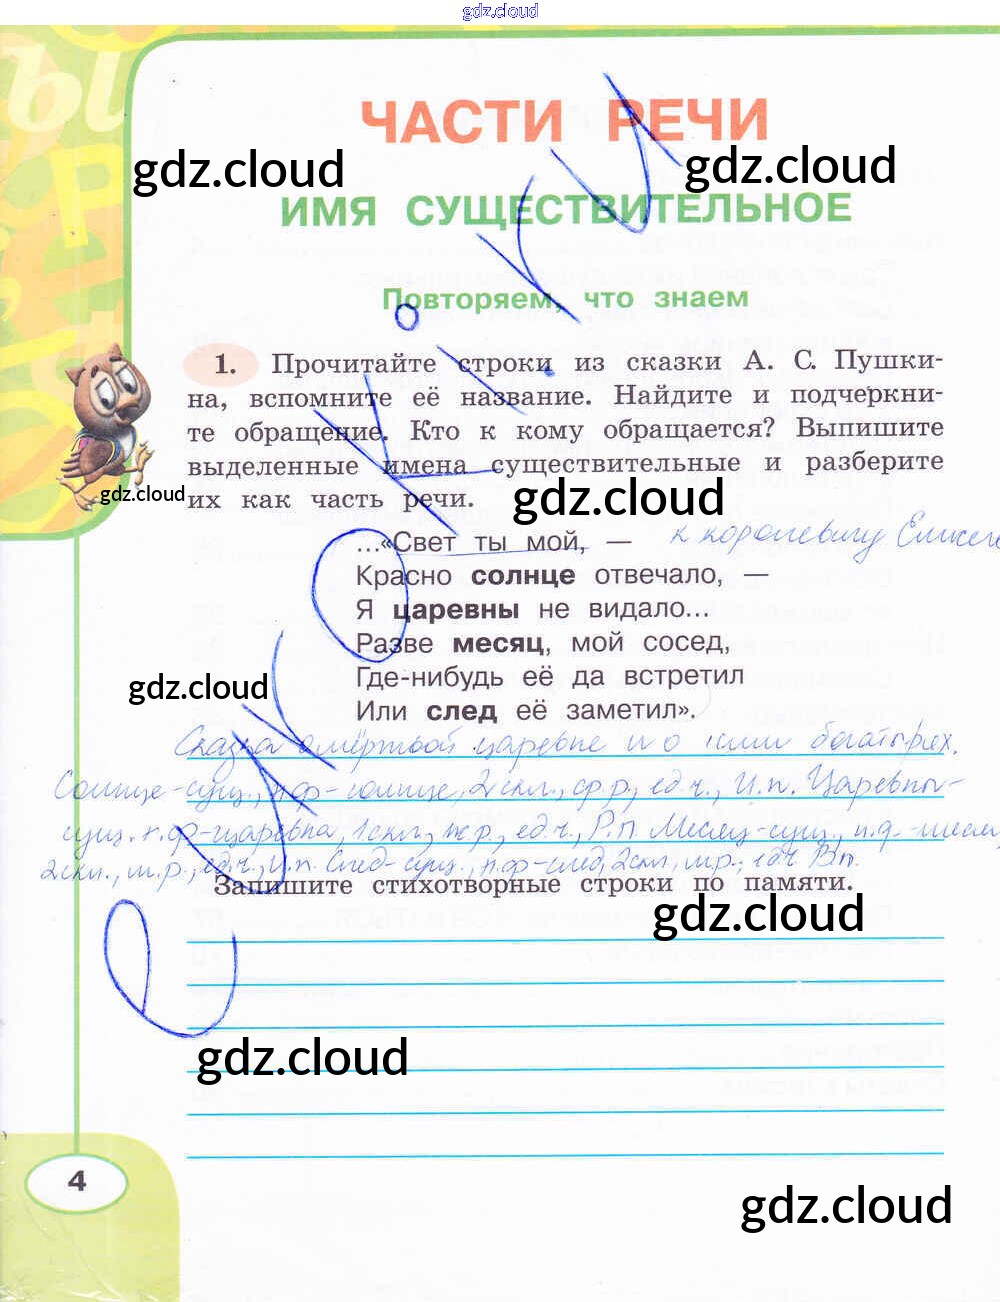 gdz.cloud
ЧАСТИ РЕЧИ
gdz.cloud gdz.cloud
ИМЯ СУЩЕСТВИТЕЛЬНОЕ
Повторяем, что знаем
1. Прочитайте строки из сказки А. С. Пушки-
на, вспомните её название. Найдите и подчеркни-
те обращение. Кто к кому обращается? Выпишите
выделенные имена существительные и разберите
их как часть речи.
gdz.cloud gdz.cloud
...«Свет ты мой, — к королевичу Елисею
Красно солнце отвечало, —
Я царевны не видало...
Разве месяц, мой сосед,
Где-нибудь её да встретил
gdz.cloud
Или след её заметил».
Сказка о мёртвой царевне и о семи богатырях.
Солнце-сущ., н.ф-солнце, 2скл., ср.р., ед.ч., И.п. Царевны-
сущ. н.ф-царевна, 1скл., ж.р., ед.ч., Р.п. Месяц-сущ., н.ф.-месяц,
2скл., м.р., ед.ч., И.п. След-сущ., н.ф-след, 2скл., м.р., ед.ч В.п.
Запишите стихотворные строки по памяти.
gdz.cloud
gdz.cloud
4
gdz.cloud